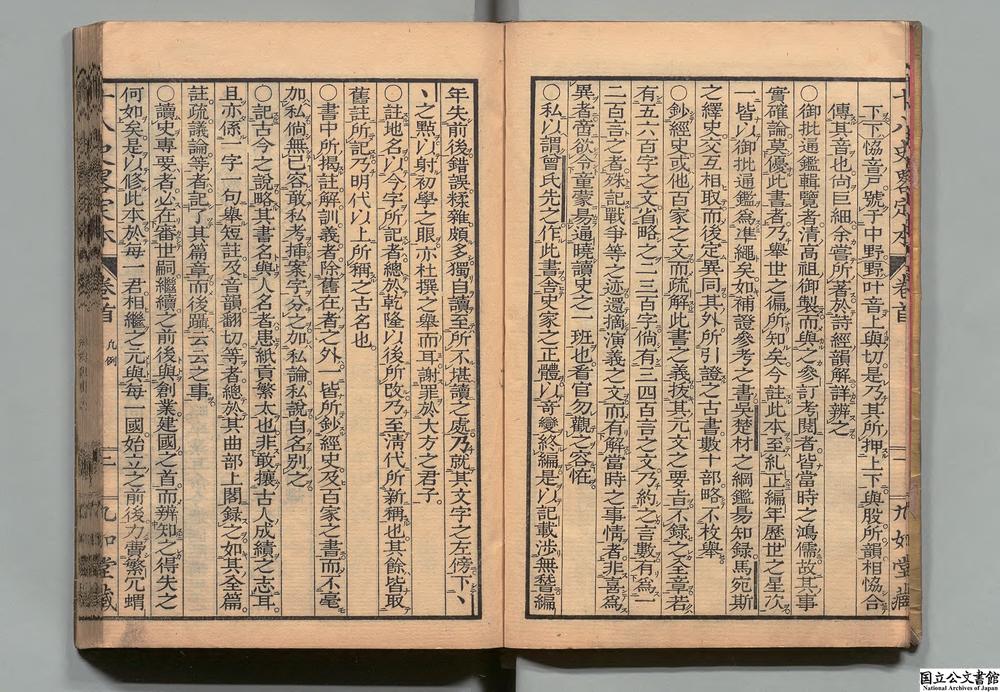 下下協音戸號于中野野叶音上與切是乃其所押上下與股所韻相恊合
傳其音也尚巨細余嘗所著於詩經韻解詳辨之
○御批通鑑輯覽者清高祖御製而與之參訂考閲者皆當時之鴻儒故其事
實確論莫優此書者乃舉世之徧所知矣今註此本至糺正編年歷世之星次
一皆以御批通鑑爲準繩矣如補證參考之書吳楚材之綱鑑易知録馬宛斯
之繹史交互相取而後定異同其外所引證之古書數十部略不枚舉
○鈔經史或他百家之文而疏解此書之義拔其元文之要旨不録之全章若
有五六百字之文省略之二三百字倘有三四百言之文乃約之言數有爲一
二百言之者殊記戰爭等之迹還摘演義之文而有解當時之事情者非喜爲
異者啻欲令童蒙易通曉讀史之一班也看官勿觀之容恠
○私以謂曾氏先之作此書舍史家之正體以奇變終編是以記載涉無瞀編
年失前後錯誤糅雜頗多獨自讀至所不堪讀之處乃就其文字之左傍下丶
丶之點以射初學之眼亦杜撰之舉而耳謝罪於大方之君子
○註地名以今字所記者總於乾隆以後所改乃至清代所新稱也其餘皆取
舊註所記乃明代以上所稱之古名也
○書中所揭註解訓義者除舊在者之外一皆所鈔經史及百家之書而不毫
加私倘無已容敢私考挿案字分之加私論私說自名別之
○記古今之說略其書名與人名者患紙頁繁太也非敢攘古人成績之志耳
且亦係一字一句舉短註及音韻翻切等者總於其曲部上闍録之如其全篇
註疏議論等者記了其篇章而後躡云云之事
○讀史專要者必在審世嗣繼續之前後與創業建國之首而辨知之得失之
何如矣是以修此本於每一君相繼之元與每一國始立之前後力費繁冗蝟
十八史略定本
卷首
凡例
二
九如堂藏
国立公文書館
National Archives of Japan